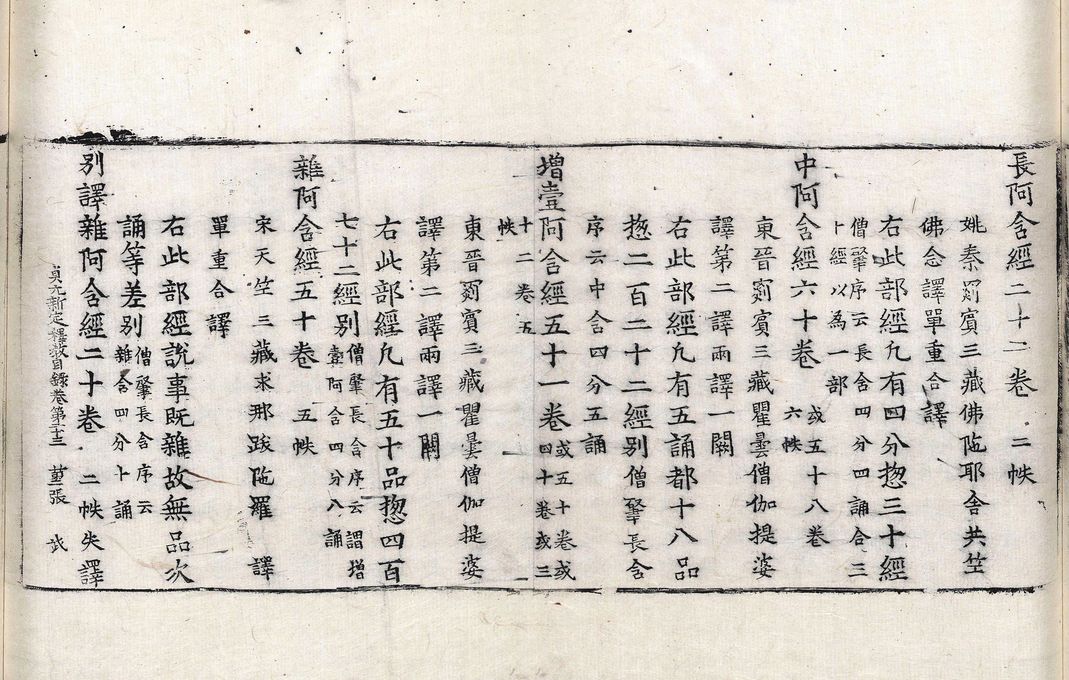 長阿含經二十二卷 二帙
姚秦罽賓三藏佛陁耶舍共竺
佛念譯單重合譯
右此部經凢有四分揔三十經
僧肇序云長含四分四誦合三
十經以為一部
中阿含經六十卷 或五十八卷
六帙
東晉罽賓三藏瞿曇僧伽提婆
譯第二譯兩譯一闕
右此部經凢有五誦都十八品
揔二百二十二經别僧肇長含
序云中含四分五誦
增壹阿含經五十一卷 或五十卷或
四十卷或三
十二卷五
帙
東晉罽賓三藏瞿曇僧伽提婆
譯第二譯兩譯一闕
右此部經凢有五十品揔四百
七十二經别 僧肇長含序云謂增
壹阿含四分八誦
雜阿含經五十卷 五帙
宋天竺三藏求那跋陁羅 譯
單重合譯
右此部經説事既雜故無品次
誦等差别 僧肇長含序云
雜含四分十誦
别譯雜阿含經二十卷 二帙失譯
貞元新定釋教目錄卷第十三 張 武